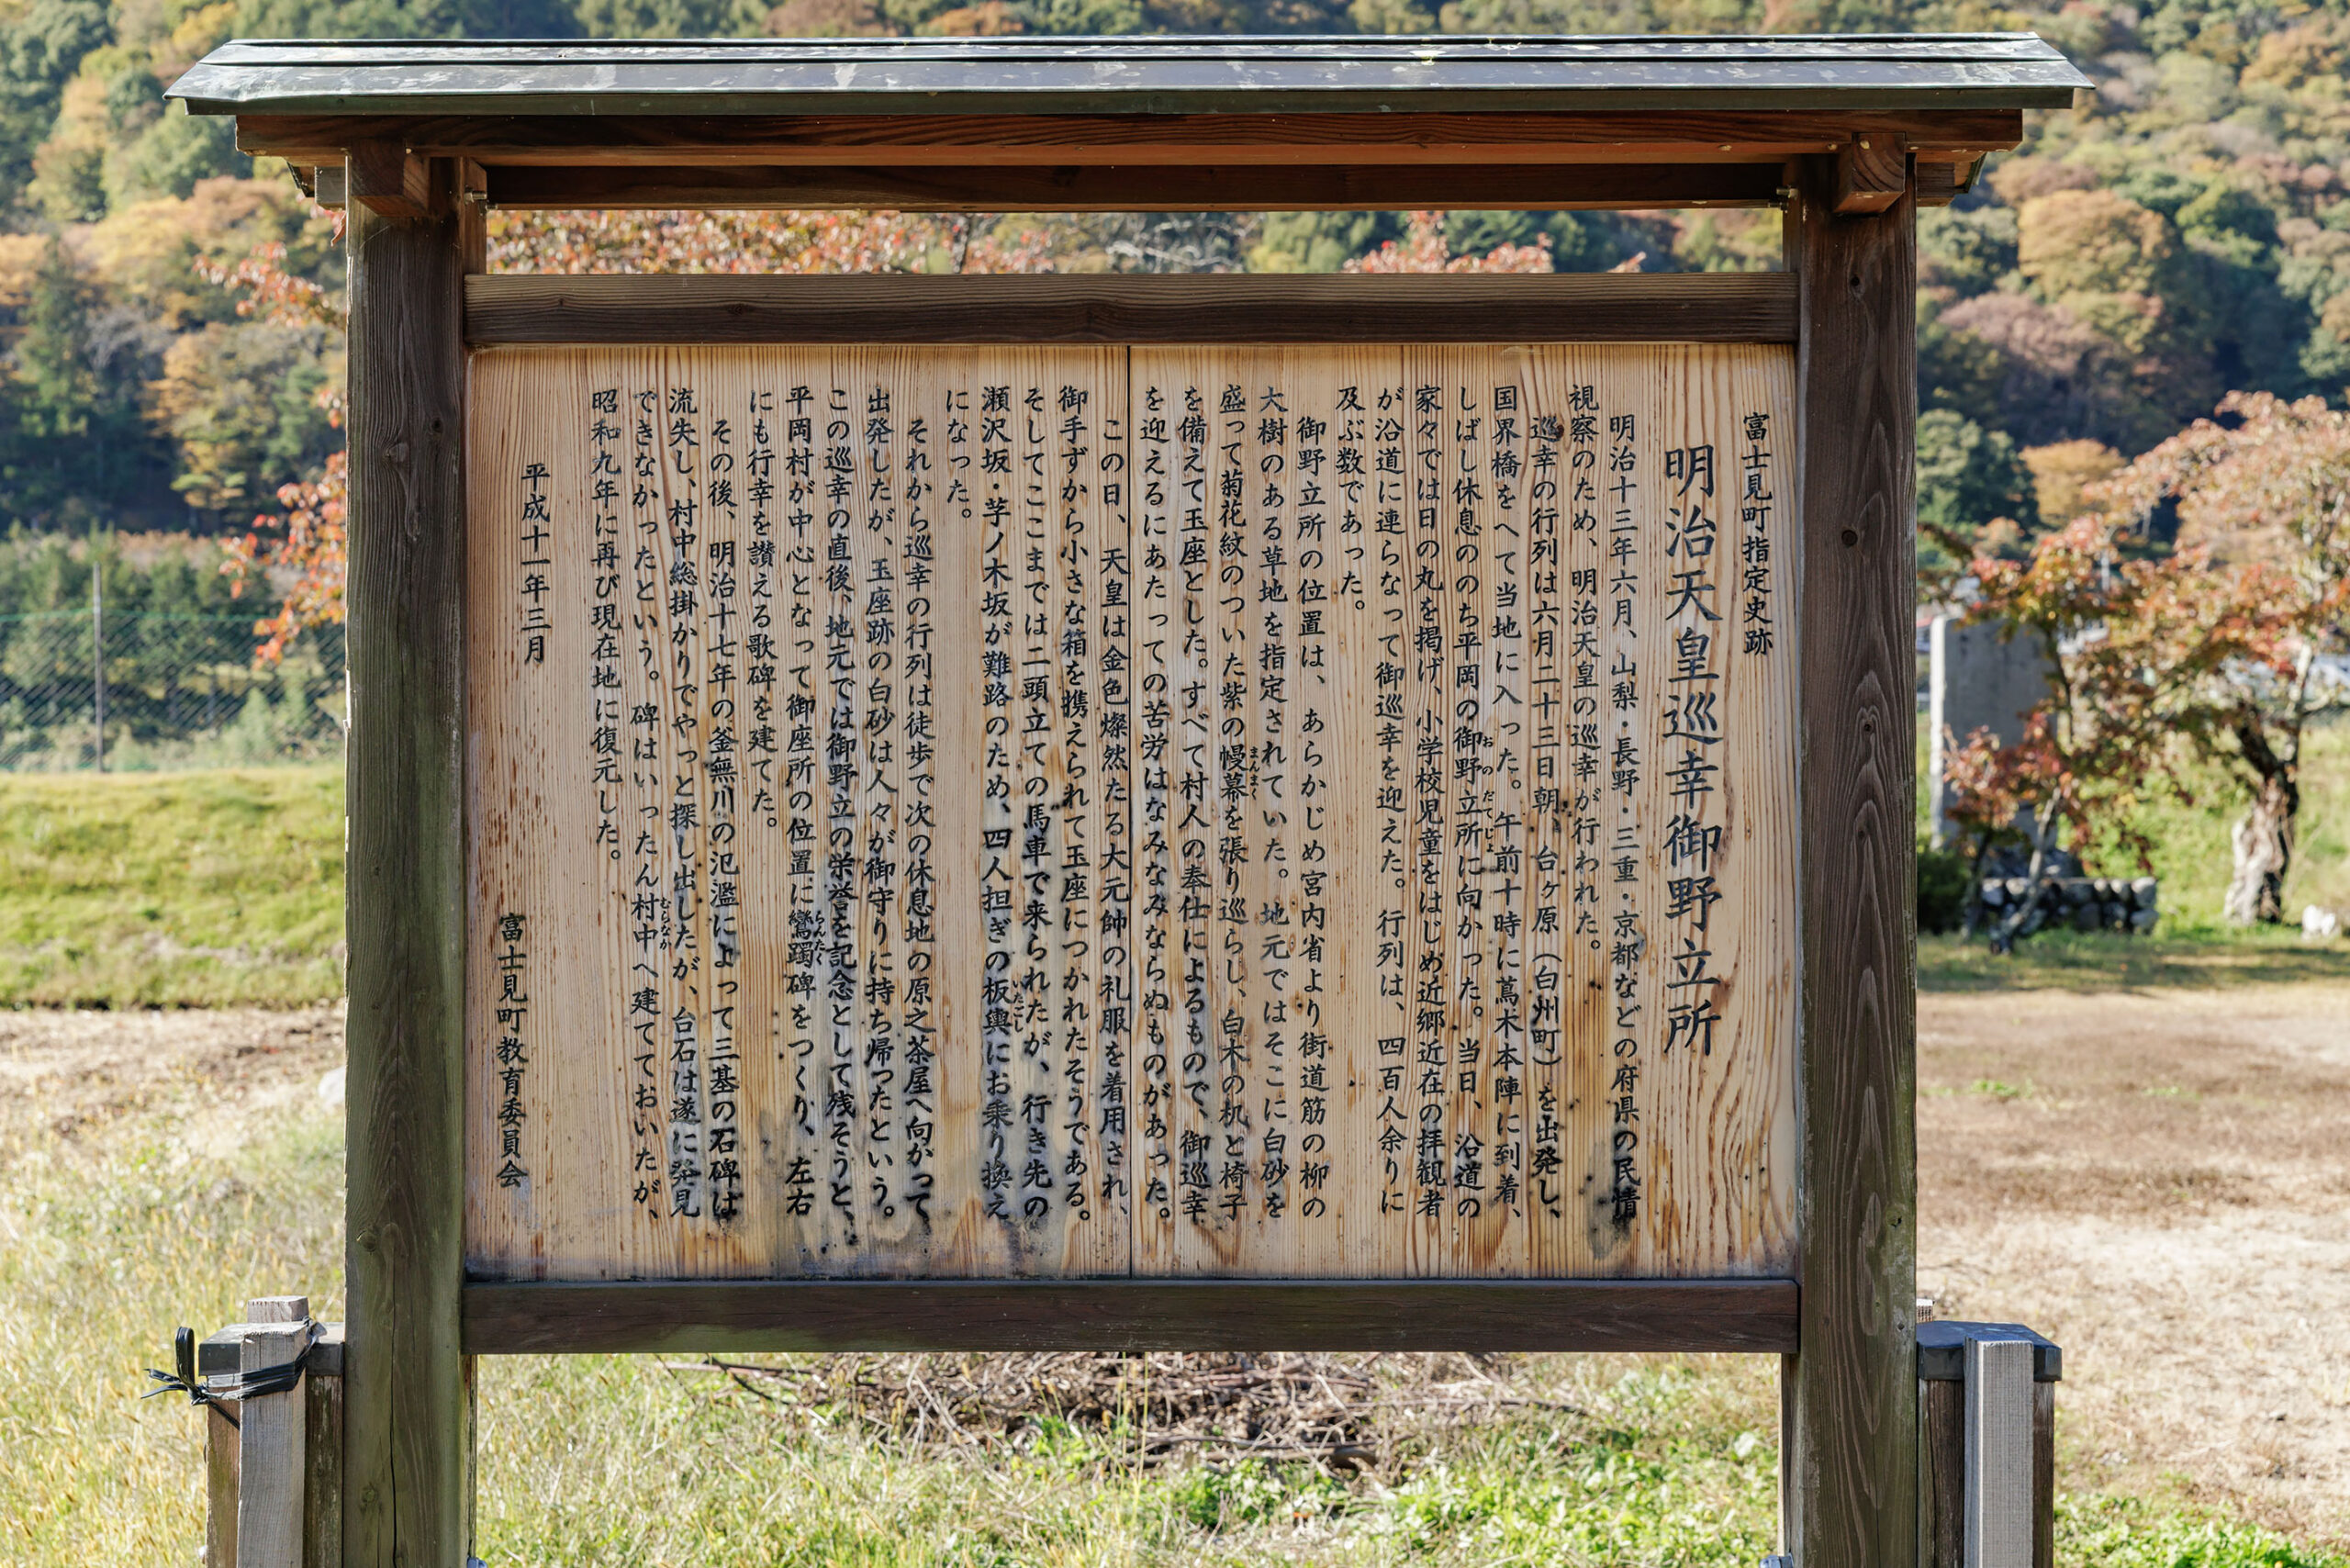 富士見町指定史跡
明治天皇巡幸御野立所
明治十三年六月、山梨・長野・三重・京都などの府県の民情
視察のため、明治天皇の巡幸が行われた。
巡幸の行列は六月二十三日朝、台ヶ原（白州町）を出発し、
国界橋をへて当地に入った。午前十時に蔦木本陣に到着、
しばし休息ののち平岡の御野立所に向かった。当日、沿道の
おのだてしょ
家々では日の丸を掲げ、小学校児童をはじめ近郷近在の拝観者
が沿道に連らなって御巡幸を迎えた。行列は、四百人余りに
及ぶ数であった。
御野立所の位置は、あらかじめ宮内省より街道筋の柳の
大樹のある草地を指定されていた。地元ではそこに白砂を
盛って菊花紋のついた紫の幔幕を張り巡らし、白木の机と椅子
まんまく
を備えて玉座とした。すべて村人の奉仕によるもので、御巡幸
を迎えるにあたっての苦労はなみなみならぬものがあった。
この日、天皇は金色燦然たる大元帥の礼服を着用され、
御手ずから小さな箱を携えられて玉座につかれたそうである。
そしてここまでは二頭立ての馬車で来られたが、行き先の
瀬沢坂・芋ノ木坂が難路のため、四人担ぎの板輿にお乗り換え
いたこし
になった。
それから巡幸の行列は徒歩で次の休息地の原之茶屋へ向かって
出発したが、玉座跡の白砂は人々が御守りに持ち帰ったという。
この巡幸の直後、地元では御野立の栄誉を記念として残そうと、
平岡村が中心となって御座所の位置に鸞躅碑をつくり、左右
らんたく
にも行幸を讃える歌碑を建てた。
その後、明治十七年の釜無川の氾濫によって三基の石碑は
流失し、村中総掛かりでやっと探し出したが、台石は遂に発見
できなかったという。碑はいったん村中へ建てておいたが、
むらなか
昭和九年に再び現在地に復元した。
平成十一年三月
富士見町教育委員会